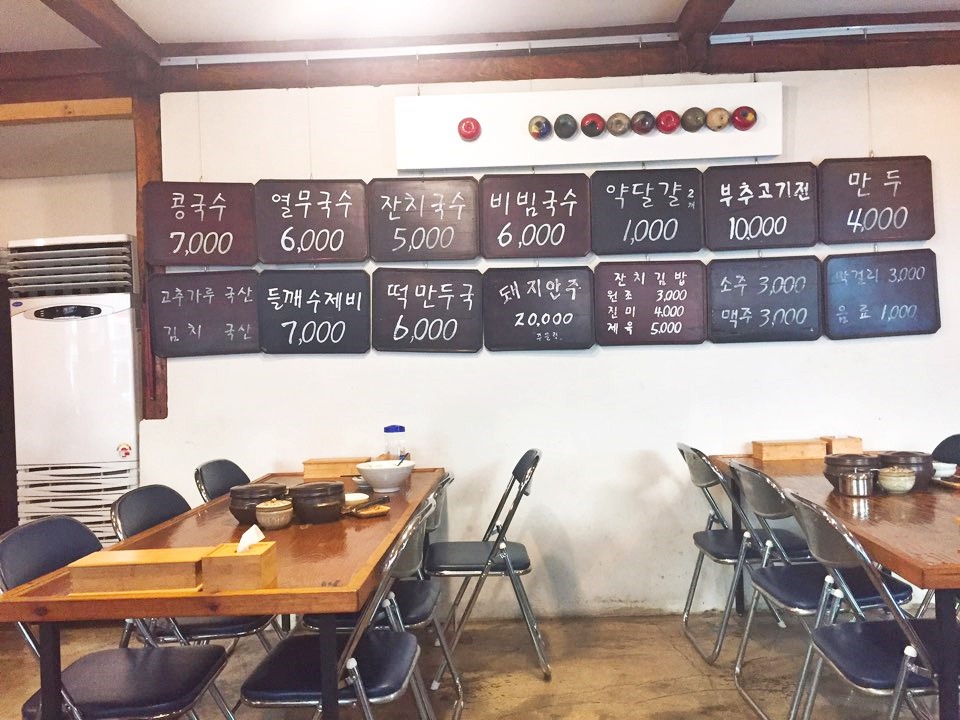 콩국수
7,000
열무국수
6,000
잔치국수
5,000
비빔국수
6,000
약달걀 2개
1,000
부추고기전
10,000
만두
4,000
고추가루 국산
김치 국산
들깨수제비
7,000
떡만두국
6,000
돼지안주
20,000
잔치김밥
원조 3,000
진미 4,000
제육 5,000
소주 3,000
맥주 3,000
막걸리 3,000
음료 1,000